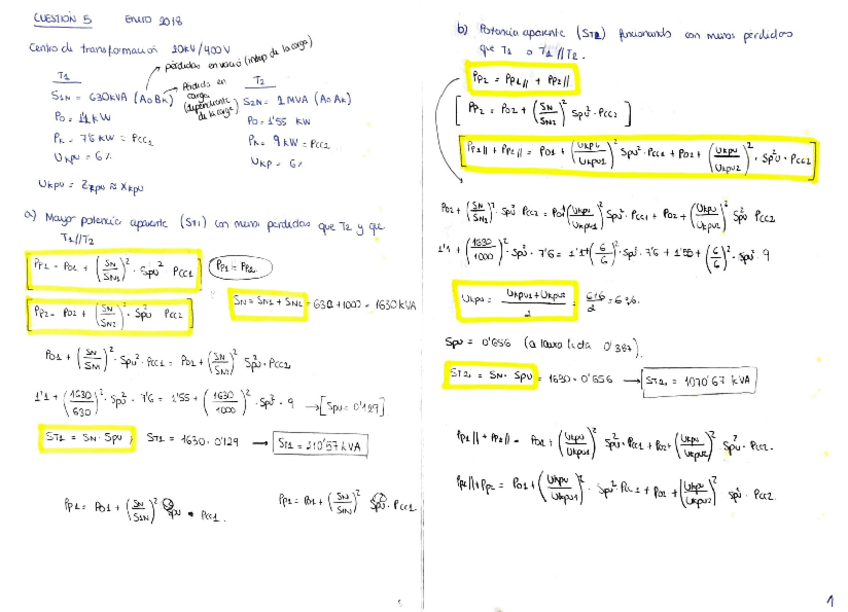 CUESTIÓN 5 ENERO 2018
Centro de transformación 20kV/400V
pérdidas en vacío (indep de la carga)
T1
Pérdida en carga (dependiente de la carga)
T2
S1N = 630kVA (AoBk)
S2N = 1 MVA (AoAk)
Po = 1'1 kW
Po = 1'55 kW
Pk = 7'6 kW = Pcc1
Pk = 9 kW = Pcc2
Ukpu = 6%
Ukp = 6%
Ukpu = Zkpu ≈ Xkpu
a) Mayor potencia aparente (ST1) con menos perdidas que T2 y que
T1//T2
Pp1 = Po1 + (SN/SN1)² · Spu² Pcc1
Pp1 = Pp2
Pp2 = Po2 + (SN/SN2)² · Spu² Pcc2
SN = SN1 + SN2 = 630 + 1000 = 1630 kVA
Po1 + (SN/SN1)² · Spu² · Pcc1 = Po1 + (SN/SN2)² Spu² Pcc2
1'1 + (1630/630)² · Spu² · 7'6 = 1'55 + (1630/1000)² · Spu² · 9 → [Spu = 0'129]
ST1 = SN · Spu; ST1 = 1630 · 0'129 → ST1 = 210'57 kVA
Pp1 = Po1 + (SN/S1N)² Spu · Pcc1.
Pp1 = Po1 + (SN/S1N)² Spu · Pcc1
b) Potencia aparente (ST2) funcionando con menos pérdidas
que T1 o T1//T2.
Pp2 = Pp1// + Pp2//
[Pp2 = Po2 + (SN/SN2)² Spu² · Pcc2]
Pp1// + Pp2// = Po1 + (Ukpu/Ukpu1)² Spu² · Pcc1 + Po2 + (Ukpu/Ukpu2)² · Spu² · Pcc2
Po2 + (SN/SN2)² · Spu² Pcc2 = Po1 + (Ukpu/Ukpu1)² Spu² · Pcc1 + Po2 + (Ukpu/Ukpu2)² Spu² Pcc2
1'1 + (1630/1000)² · Spu² · 7'6 = 1'1 + (6/6)² · Spu² · 7'6 + 1'55 + (6/6)² · Spu² · 9
Ukpu = Ukpu1 + Ukpu2/2 = 6+6/2 = 6%.
Spu = 0'656 (a laura le da 0'387).
ST2 = SN · Spu = 1630 · 0'656 → ST2 = 1070'67 kVA
Pp1// + Pp2// = Po1 + (Ukpu/Ukpu1)² Spu² · Pcc1 + Po2 + (Ukpu/Ukpu2)² Spu² · Pcc2.
Pp1// + Pp2 = Po1 + (Ukpu/Ukpu1)² · Spu² Pcc1 + Po2 + (Ukpu/Ukpu2)² Spu² · Pcc2
1